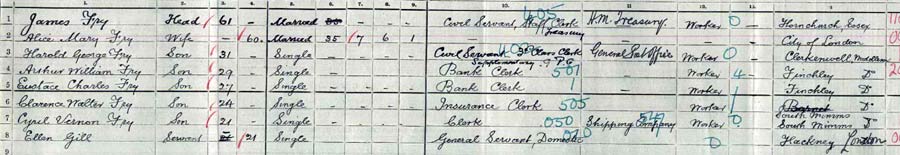 1. 2. 3. 4. 5. 6. 7. 8. 9. 10. 11. 12. 13. 14.
405
1 James Fry Head 61 - Married Civil Servant, Staff Clerk Treasury H.M. Treasury. Worker 0 Hornchurch, Essex
2 Alice Mary Fry Wife - 60. Married 35 7 6 1 - - - City of London
3 Harold George Fry Son 31 - Single Civil Servant 3rd Class Clerk Supplementary G.P.O. General Post Office Worker 0 Clerkenwell, Middlesex
4 Arthur William Fry Son 29 - Single Bank Clerk 501 Worker 4 Finchley Do
5 Eustace Charles Fry Son 27 - Single Bank Clerk Worker Finchley Do
6 Clarence Walter Fry Son 24 - Single Insurance Clerk 505 Worker South Mimms Do
7 Cyril Vernon Fry Son 21 - Single Clerk 050 Shipping Company Worker 0 South Mimms Do
8 Ellen Gill Servant 21 Single General Servant Domestic 0 Hackney London
9